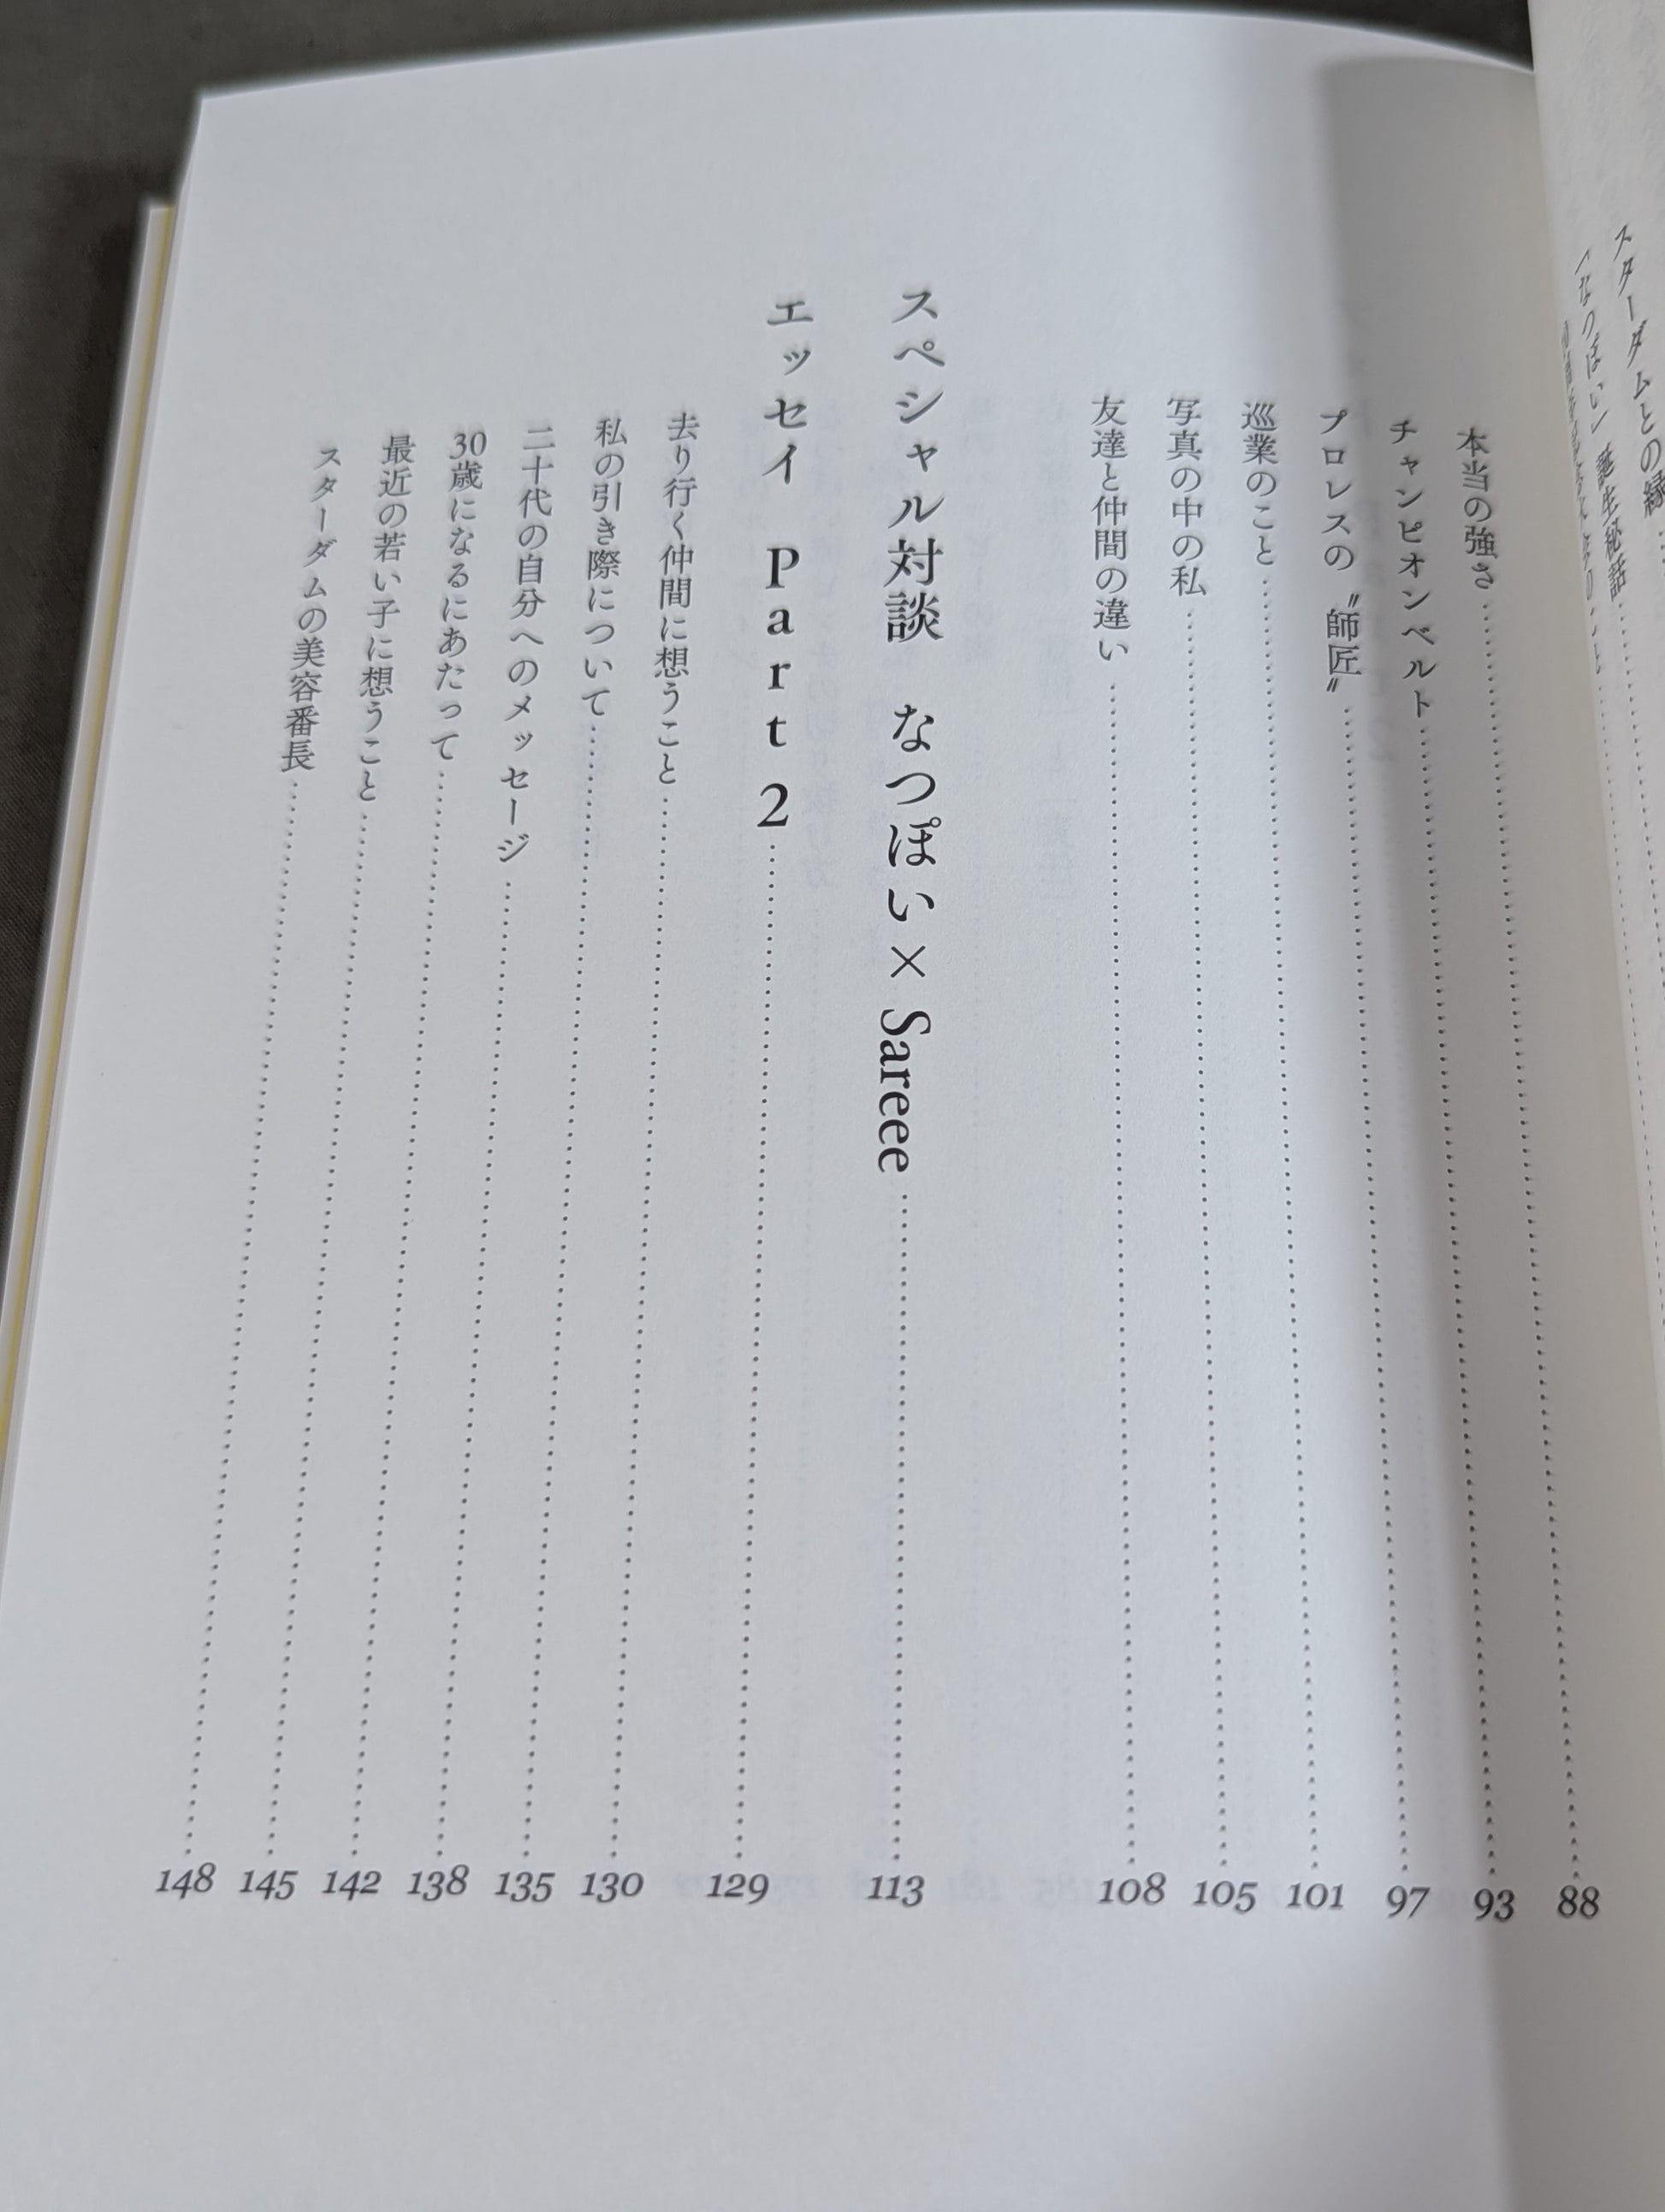 スターダムとの縁
「なつぽい」誕生秘話
本当の強さ……88
チャンピオンベルト……93
プロレスの〝師匠〟……97
巡業のこと……101
写真の中の私……105
友達と仲間の違い……108
スペシャル対談　なつぽい×Sareee……113
エッセイ　Part 2……129
去り行く仲間に想うこと……130
私の引き際について……135
二十代の自分へのメッセージ……138
30歳になるにあたって……142
最近の若い子に想うこと……145
スターダムの美容番長……148